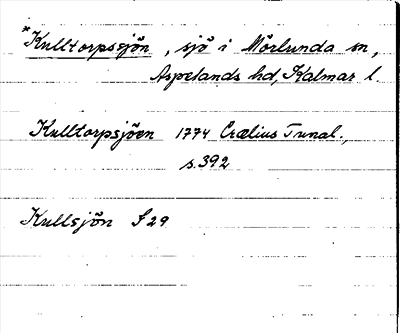 *Kulltorpssjön, sjö i Mörlunda sn,
Aspelands hd, Kalmar l.
Kulltorpsjöen 1774 Crælius Tunal.,
s.392
Kullsjön S 29